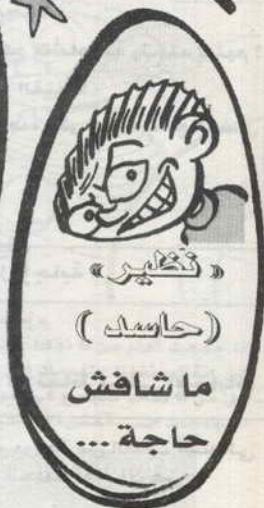 « نظير »
( حاسد )
ما شافش
حاجة ...